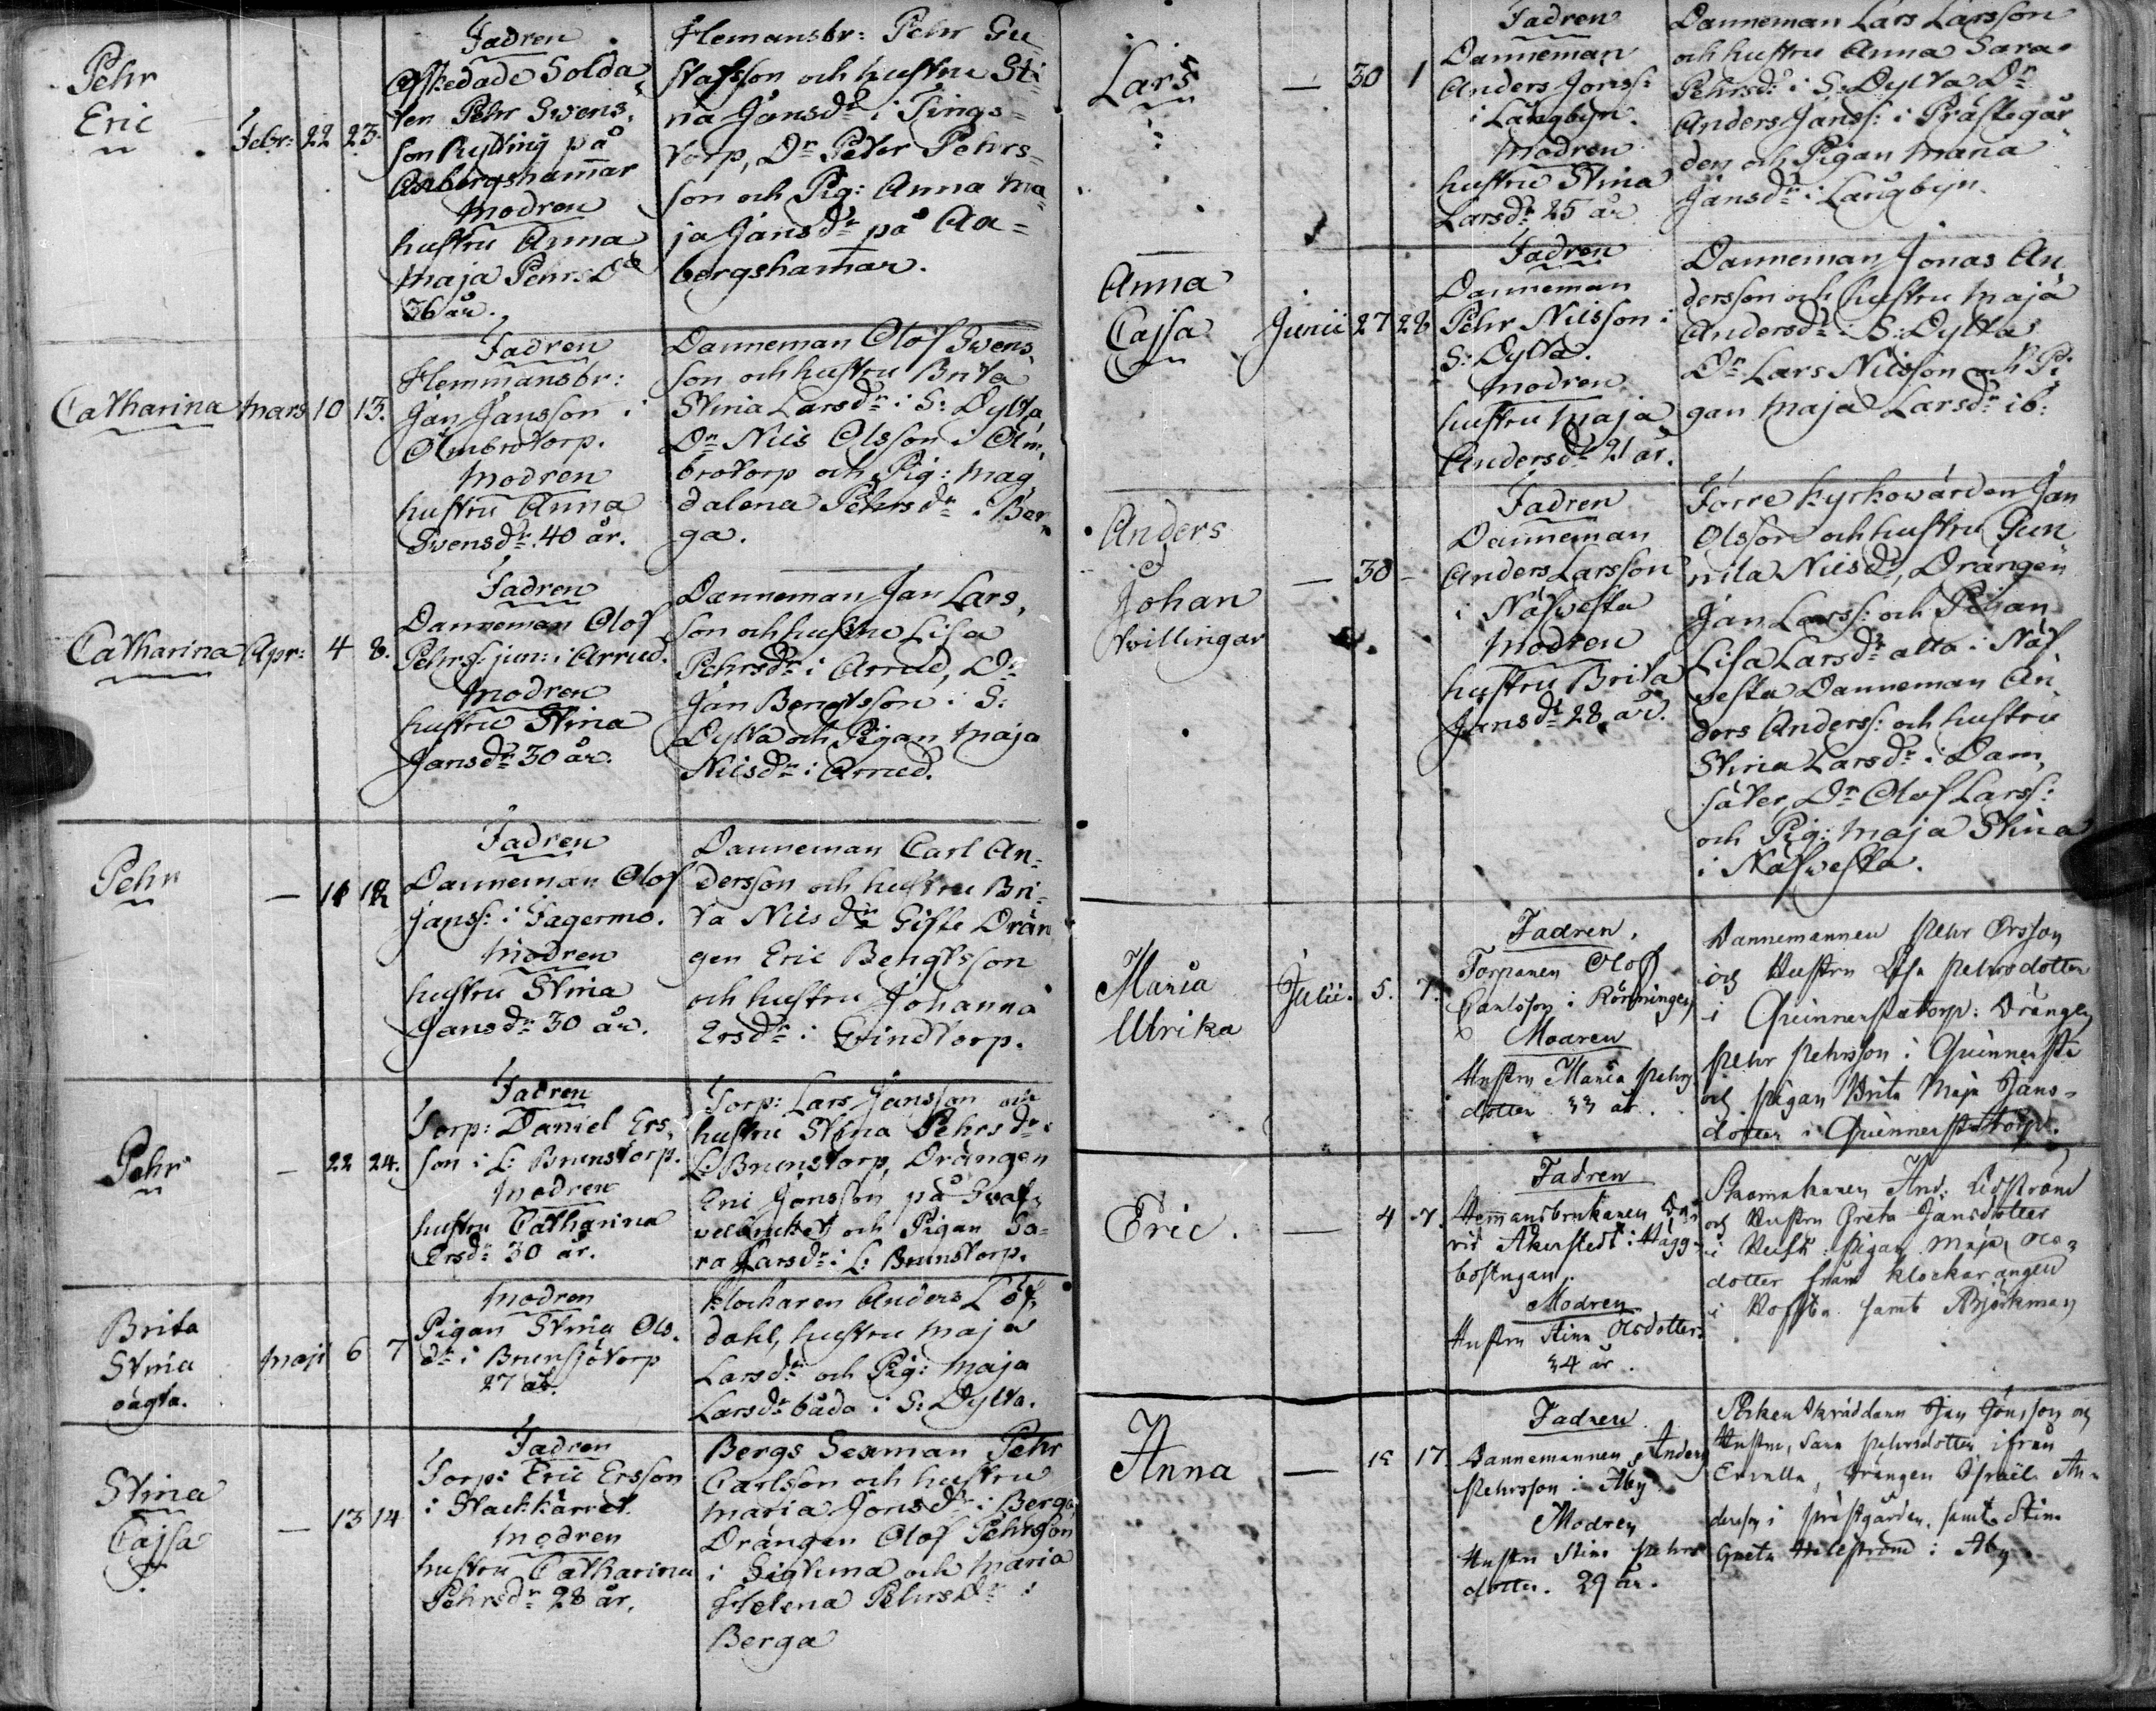 Pehr
Eric
Febr: 22 23.
Fadren
Afskedade Solda
ten Pehr Swens
son Rytting på
Aabergshammar
Modren
hustru Anna
Maja Pehrsdr
36 år.
Hemansbr: Pehr Gu
stafsson och hustru Sti
na Jansdr i Tings=
torp, Dr Peter Pehrs=
son och Pig: Anna Ma
ja Jansdr på Aa=
bergshamar.
Catharina Mars 10 13.
Fadren
Hemmansbr:
Jan Jansson i
Ölmbrotorp.
Modren
hustru Anna
Svensdr 40 år.
Danneman Olof Swens
son och hustru Brita
Stina Larsdr i S: Dylta
Dr Nils Olsson i Ölm
brotorp och Pig: Mag
dalena Pehrsdr i Ber
ga.
Catharina Apr: 4 8.
Fadren
Danneman Olof
Pehrs: jun: i Arrud.
Modren
hustru Stina
Jansdr 30 år.
Danneman Jan Lars
son och hustru Lisa
Pehrsdr i Arrud, Dr
Jan Bengtsson i S:
Dylta och Pigan Maja
Nilsdr i Arrud.
Pehr — 12
Fadren
Danneman Olof
Janss: i Fagermo.
Modren
hustru Stina
Jansdr 30 år.
Danneman Carl An=
dersson och hustru Bri=
ta Nilsdr Gifte Drän
gen Eric Bengtsson
och hustru Johanna
Ersdr i Grindtorp.
Pehr — 22 24.
Fadren
Torp: Daniel Ers
son i L: Brunstorp.
Modren
hustru Catharina
Ersdr 30 år.
Torp: Lars Jansson och
hustru Stina Pehrsdr i
L: Brunstorp, Drängen
Eric Jonsson på Svaf
velbruket och Pigan Sa=
ra Larsdr i L: Brunstorp.
Brita
Stina
oägta.
Maji 6 7
Modren
Pigan Stina Ols
dr i Brunsjötorp
27 år.
Klockaren Anders Löf
dahl, hustru Maja
Larsdr och Pig: Maja
Larsdr båda i S: Dylta.
Stina
Cajsa
— 13 14
Fadren
Torp: Eric Ersson
i Stackkärret
Modren
hustru Catharina
Pehrsdr 28 år.
Bergs Sexman Pehr
Carlsson och hustru
Maria Jonsdr i Berga
Drängen Olof Pehrsson
i Sigtuna och Maria
Helena Pehrsdr i
Berga
Lars — 30 1
Fadren
Danneman
Anders Jonss:
i Långbyn.
Modren
hustru Stina
Larsdr 25 år
Danneman Lars Larsson
och hustru Anna Sara
Pehrsd: i S: Dylta Dr
Anders Janss: i Prästegår
den och Pigan Maria
Jansdr i Långbyn.
Anna
Cajsa
Junii 27 28
Fadren
Danneman
Pehr Nilsson i
S: Dylta.
Modren
hustru Maja
Andersdr 21 år.
Danneman Jonas An
dersson och hustru Maja
Andersdr i S: Dylta
Dr Lars Nilsson och Pi
gan Maja Larsdr ib:
Anders
&
Johan
tvillingar
— 30 -
Fadren
Danneman
Anders Larsson
i Näsvesta
Modren
hustru Brita
Jansdr 28 år.
Förre kyrkovärden Jan
Olsson och hustru Gun
nila Nilsdr, Drängen
Jan Larss: och Pigan
Lisa Larsdr alla i Näs
vesta Danneman An
ders Anderss: och hustru
Stina Larsdr i Dam
säter, Dr Olof Larss:
och Pig: Maja Stina
i Näsvesta.
Maria
Ulrika
Julii. 5. 7.
Fadren.
Torparen Olof
Carlsson i Rönningen
Modren
Hustru Maria Pehrs
dotter 33 år.
Dannemannen Pehr Ersson
och Hustru Lisa Pehrsdotter
i Qvinnerstatorp: Drängen
Pehr Pehrsson i Qvinnersta
och Pigan Brita Maja Jans=
dotter i Qvinnerstatorp.
Eric. — 4 7.
Fadren
Hemmansbrukaren Da
vid Åkerstedt i Hägg=
bostugan.
Modren
Hustru Stina Olsdotter
34 år.
Skomakaren And: Lidström
och Hustru Greta Jansdotter
i Pigan Maja Ols=
dotter från Klockarängen
i samt Björkman
Anna — 15 17.
Fadren
Dannemannen Anders
Pehrsson i Åby
Modren
Hustru Stina Pehrs
dotter. 29 år.
Sockenskräddaren Jan Jönsson och
Hustru, Sara Pehrsdotter, ifrån
Ervalla, Drängen Israël An
dersson i Prästgården, samt Stina
Greta i Åby